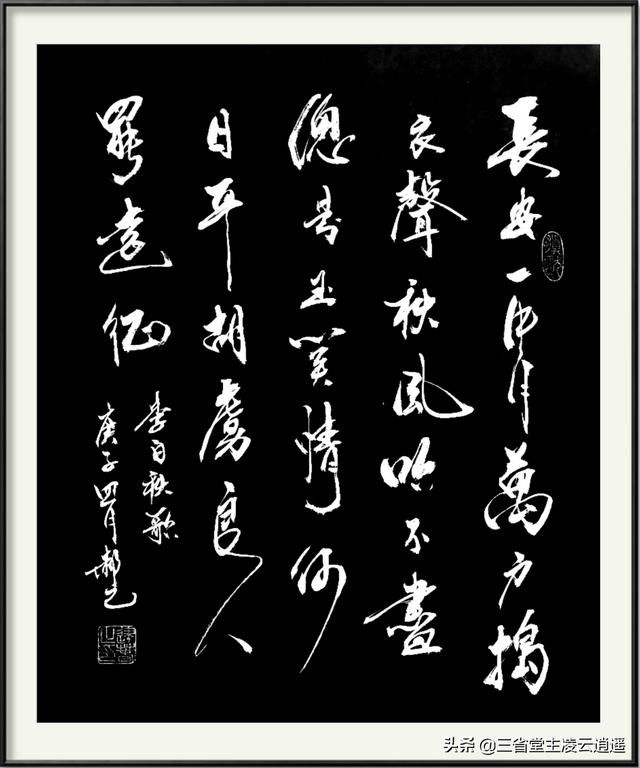 長安一片月萬户搗
衣聲秋風吹不盡
總是玉關情何
日平胡虜良人
罷遠征
李白秋歌
庚子四月
头条 @三省堂主凌云逍遥